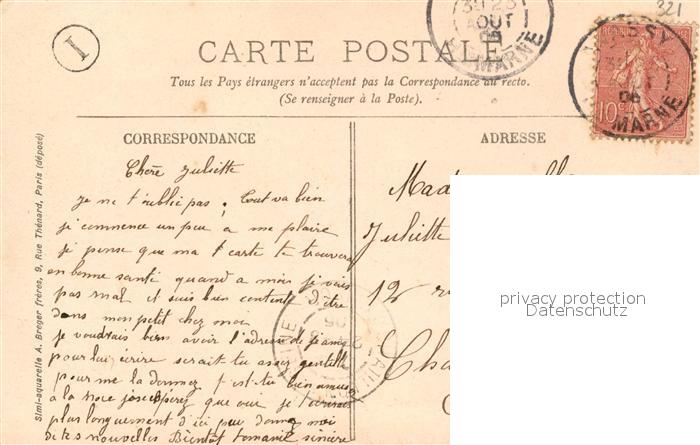 321
I
CARTE POSTALE
Tous les Pays étrangers n'acceptent pas la Correspondance au recto.
(Se renseigner à la Poste).
AOUT
MARNE
10c
06
MARNE
CORRESPONDANCE
ADRESSE
Simi-aquarelle A. Breger frères, 9, Rue Thénard, Paris (déposé)
Chère Juliette
je ne t'oublie pas ; tout va bien
je commence un peu a me plaire
je pense que ma t carte te trouvera
en bonne santé quand a moi je vais
pas mal et suis bien contente d'être
dans mon petit chez moi
je voudrais bien avoir l'adresse de
pour lui écrire serait tu assez gentille
pour me la donner t'est tu bien amusé
a la noce j'espérez que oui je t'écrirai
plus longuement d'ici peu donne moi
de tes nouvelles Bientôt sincère
Juliette
12
privacy protection
Datenschutz